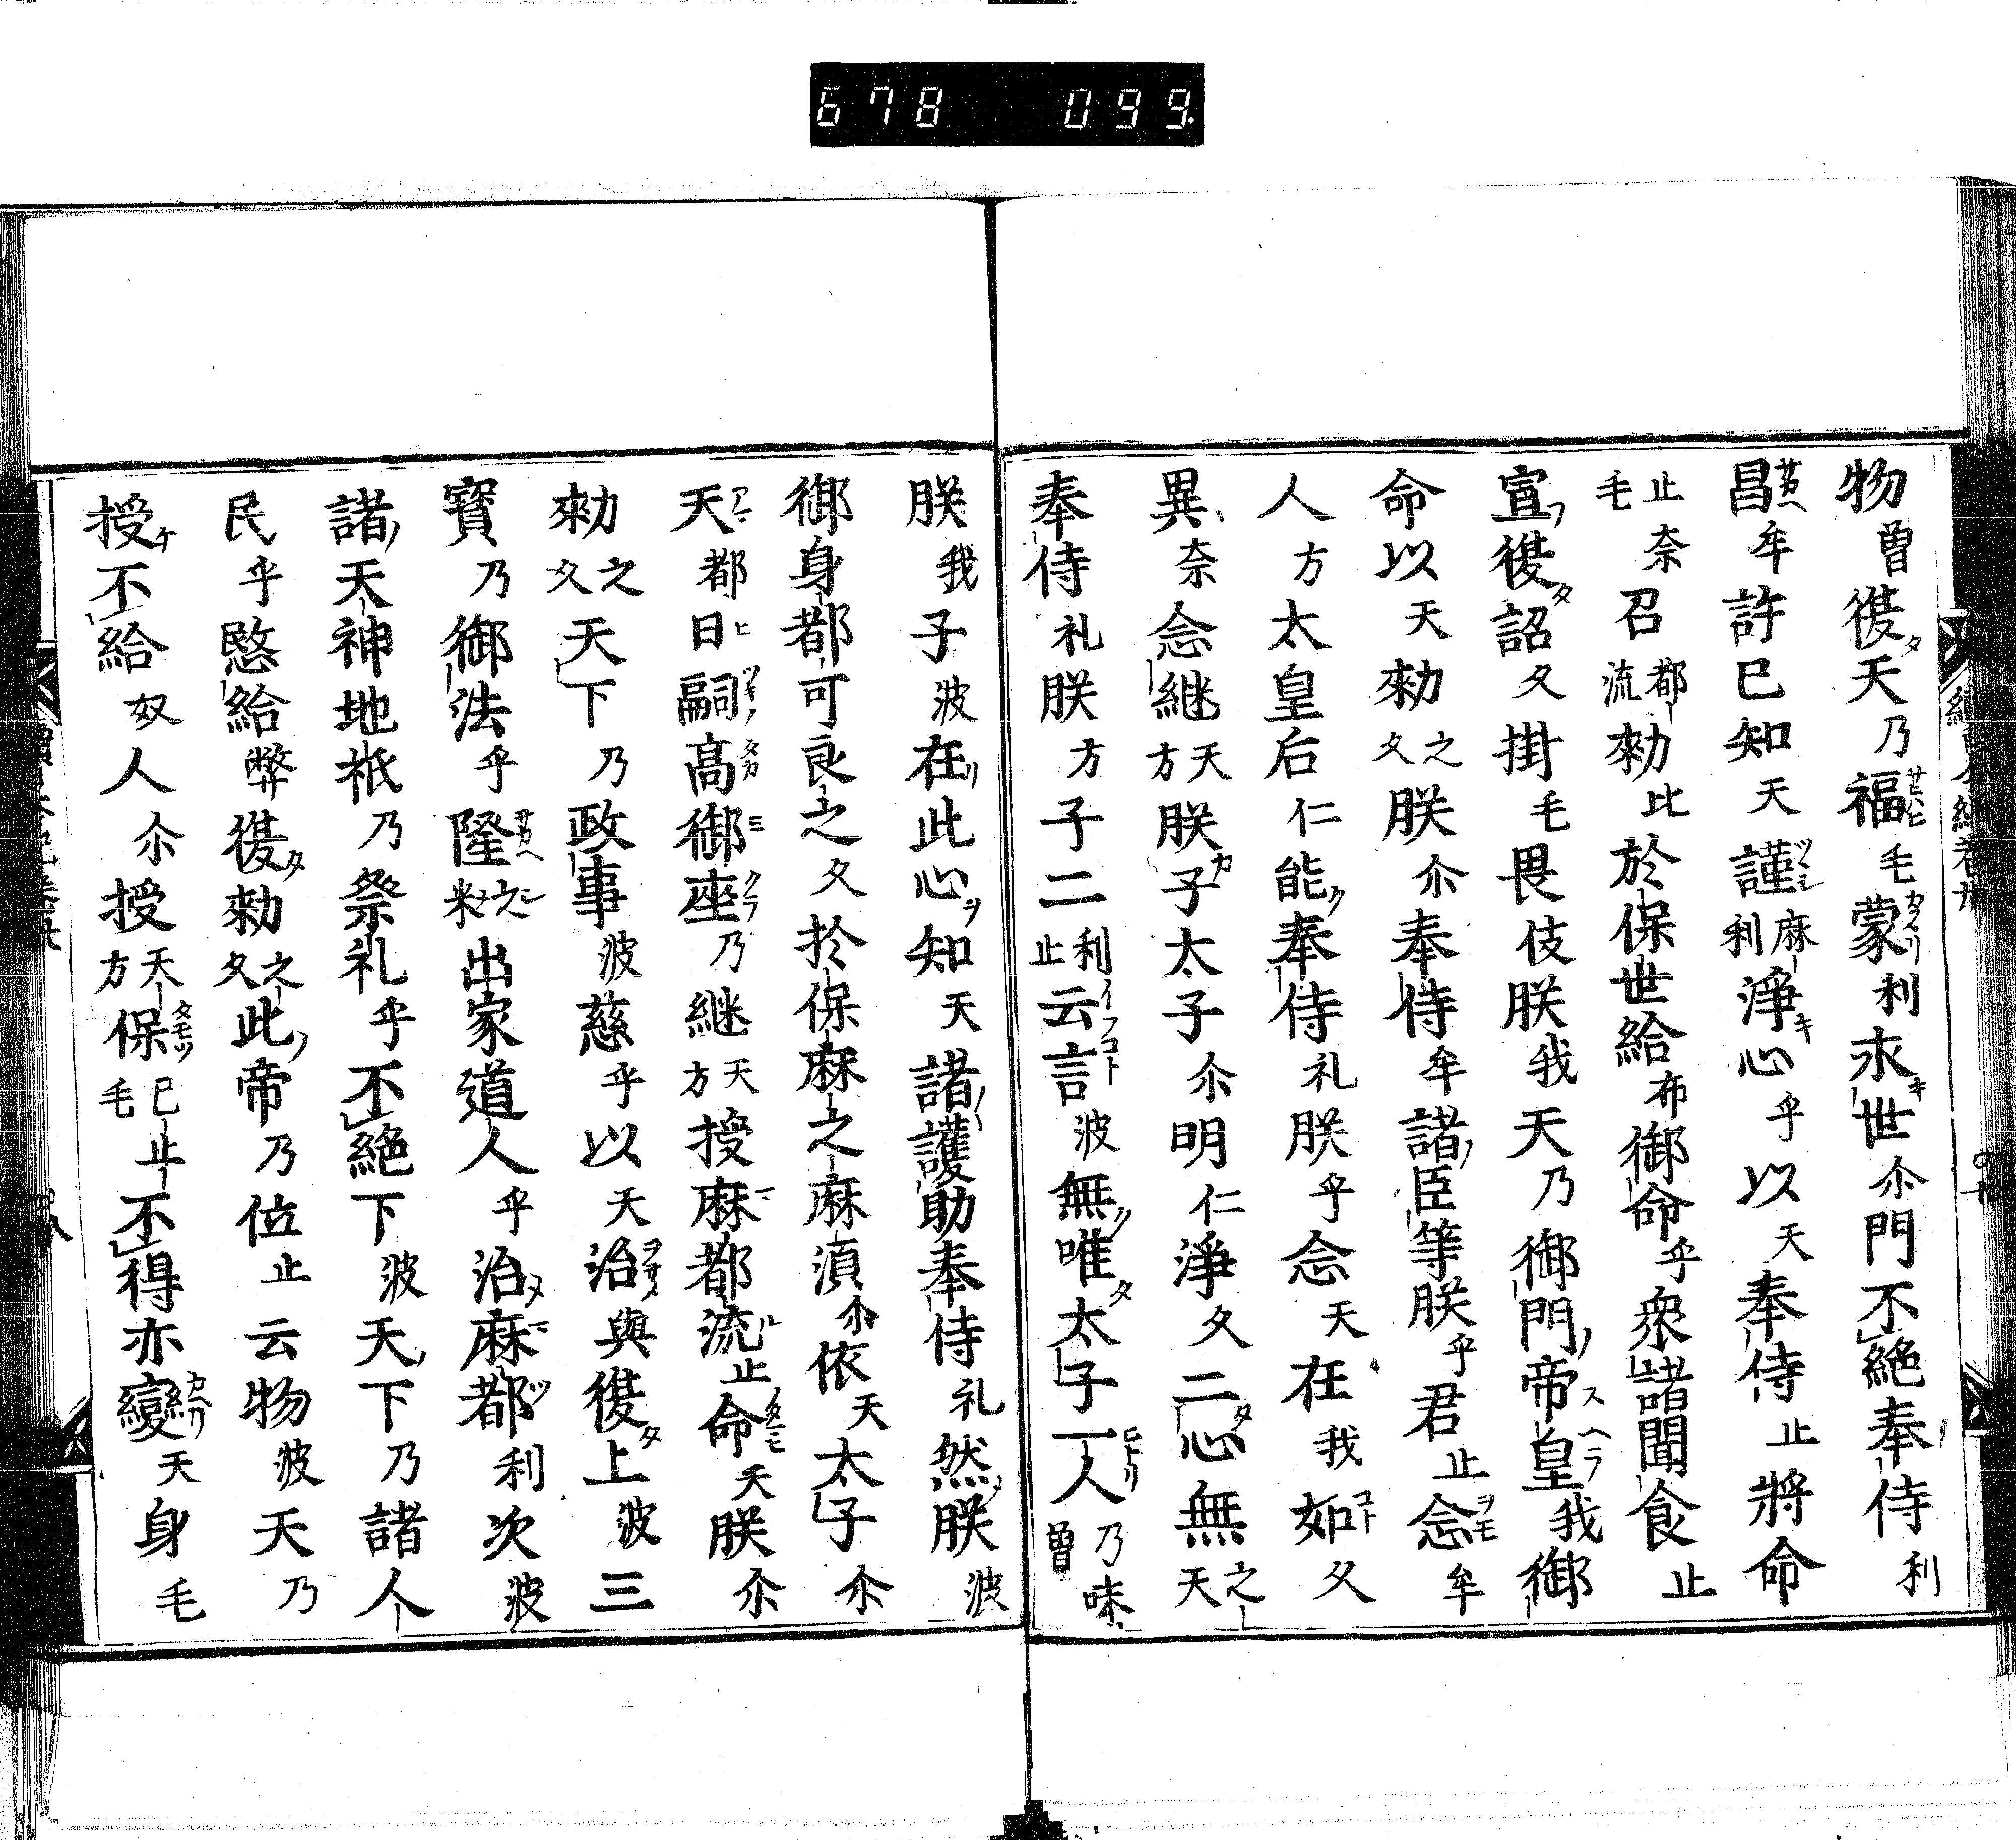 678 099.
物曽復天乃福毛蒙利求世尒門不絕奉侍利
昌牟許巳知天謹麻利淨心乎以天奉侍止將命
止毛奈召都流勑比於保世給布御命乎衆諸聞食止
宣復詔久掛毛畏伎朕我天乃御門帝皇我御
命以天勑之久朕尒奉侍牟諸臣等朕乎君止念牟
人方太皇后仁能奉侍礼朕乎念天在我如久
異奈念継天方朕子太子尒明仁淨久二心無之天
奉侍礼朕方子二利止云言波無唯太子一人乃味曽
朕我子波在此心知天諸護助奉侍礼然朕波
御身都可良之久於保麻之麻湏尒依天太子尒
天都日嗣高御座乃継天方授麻都流止命天朕尒
勑之久天下乃政事波慈乎以天治與復上波三
寶乃御法乎隆之米出家道人乎治麻都利次波
諸天神地祇乃祭礼乎不絕下波天下乃諸人
民乎愍給弊復勑之久此帝乃位止云物波天乃
授不給奴人尒授天方保巳止毛不得亦變天身毛